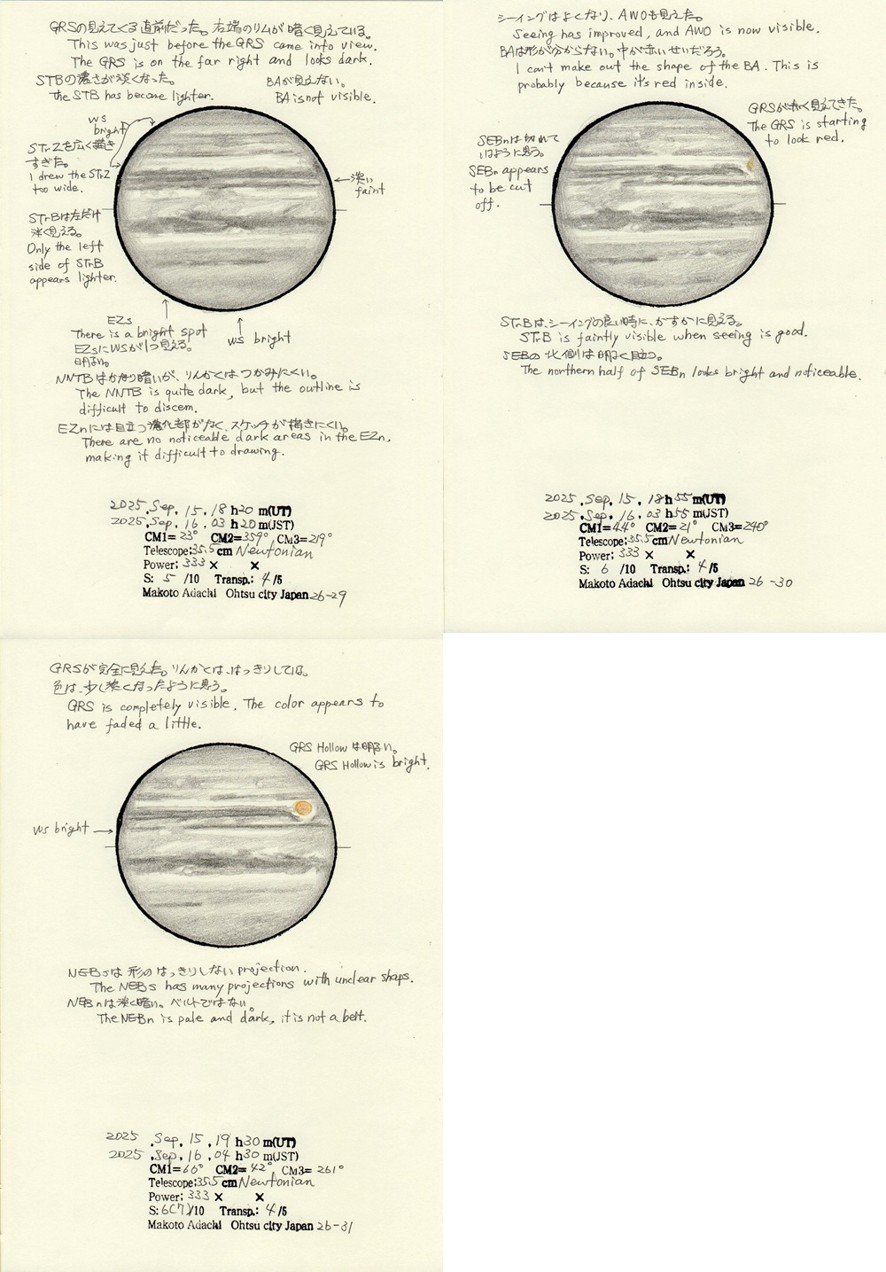 GRSの見えてくる直前だった。右端のリムが暗く見えている。
This was just before the GRS came into view.
The GRS is on the far right and looks dark.
STBの濃さが淡くなった。
The STB has become lighter.
BAが見えない。
BA is not visible.
WS
bright
STrZを広く描き
すぎた。
I drew the STrZ
too wide.
淡い
faint
STrBは左だけ
淡く見える。
Only the left
side of STrB
appears lighter.
EZs
There is a bright spot
EZsにWSが1つ見える。
明るい。
WS bright
NNTBはかなり暗いが、りんかくはつかみにくい。
The NNTB is quite dark, but the outline is
difficult to discern.
EZnには目立つ濃化部がなく、スケッチが描きにくい。
There are no noticeable dark areas in the EZn,
making it difficult to drawing.
2025.Sep. 15. 18 h20 m(UT)
2025.Sep. 16. 03 h20 m(JST)
CM1= 23° CM2= 359° CM3= 219°
Telescope:35.5cm Newtonian
Power: 333 × ×
S: 5 /10 Transp.: 4 /5
Makoto Adachi Ohtsu city Japan 26-29
シーイングはよくなり、AWOも見えた。
Seeing has improved, and AWO is now visible.
BAは形が分からない。中が赤いせいだろう。
I can't make out the shape of the BA. This is
probably because it's red inside.
GRSが赤く見えてきた。
The GRS is starting
to look red.
SEBnは切れて
いるように思う。
SEBn appears
to be cut
off.
STrBは、シーイングの良い時に、かすかに見える。
STrB is faintly visible when seeing is good.
SEBの北側は明るく目立つ。
The northern half of SEBn looks bright and noticeable.
2025.Sep. 15. 18 h 55 m(UT)
2025.Sep. 16. 03 h 55 m(JST)
CM1= 44° CM2= 21° CM3= 240°
Telescope:35.5cm Newtonian
Power: 333 × ×
S: 6 /10 Transp.: 4 /5
Makoto Adachi Ohtsu city Japan 26-30
GRSが完全に見えた。りんかくは、はっきりしている。
色は、少し淡くなったように思う。
GRS is completely visible. The color appears to
have faded a little.
GRS Hollow は明るい。
GRS Hollow is bright.
WS bright
NEBsは形のはっきりしないprojection.
The NEBs has many projections with unclear shaps.
NEBnは淡く暗い。ベルトではない。
The NEBn is pale and dark, it is not a belt.
2025 .Sep. 15 .19 h30 m(UT)
2025 .Sep. 16 .04 h30 m(JST)
CM1= 66° CM2= 42° CM3= 261°
Telescope:35.5cm Newtonian
Power: 333 × ×
S: 6(7)/10 Transp.: 4/5
Makoto Adachi Ohtsu city Japan 26-31